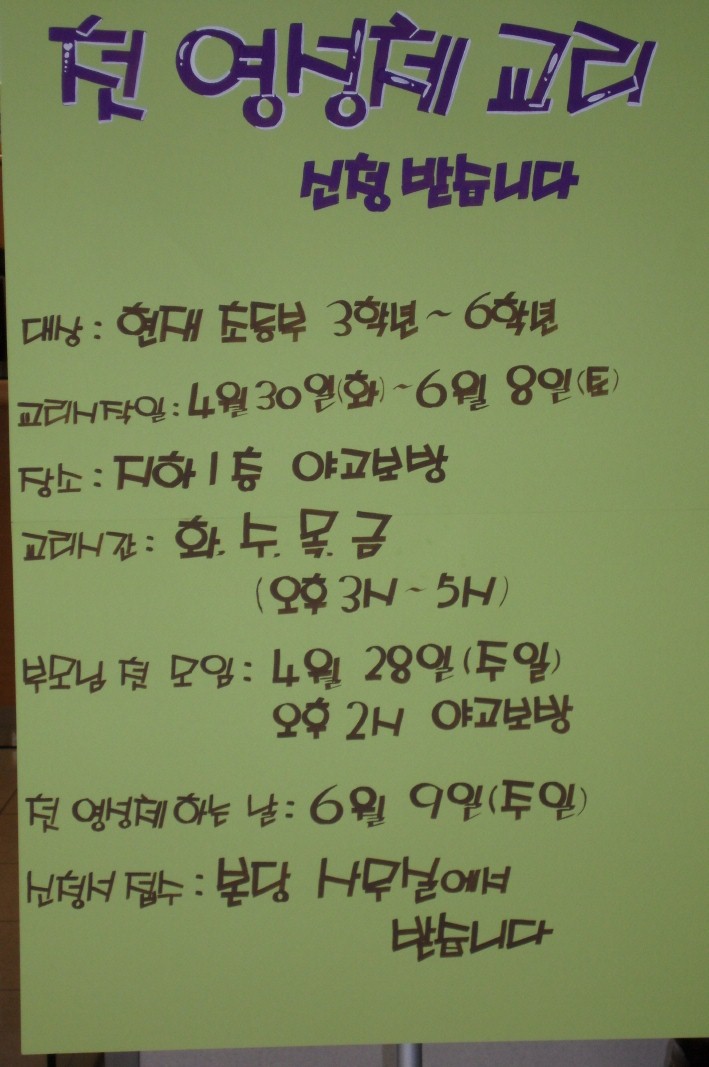 첫 영성체 교리
신청 받습니다
대상 : 현재 초등부 3학년 ~ 6학년
교리시작일 : 4월 30일(화) ~ 6월 8일(토)
장소 : 지하 1층 야고보방
교리시간 : 화. 수. 목. 금
(오후 3시 ~ 5시)
부모님 첫 모임 : 4월 28일(주일)
오후 2시 야고보방
첫 영성체 하는 날 : 6월 9일(주일)
신청서 접수 : 본당 사무실에서
받습니다